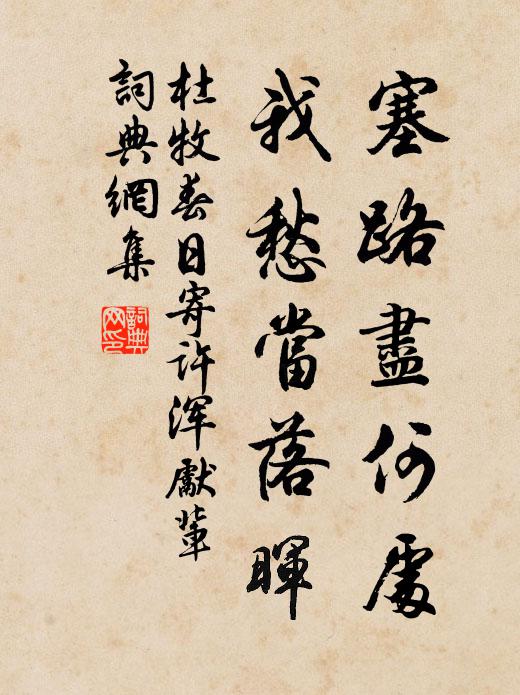 塞路盡何處
我愁當落暉
杜牧春日寄許渾獻輩
詞典網集
詞典网印